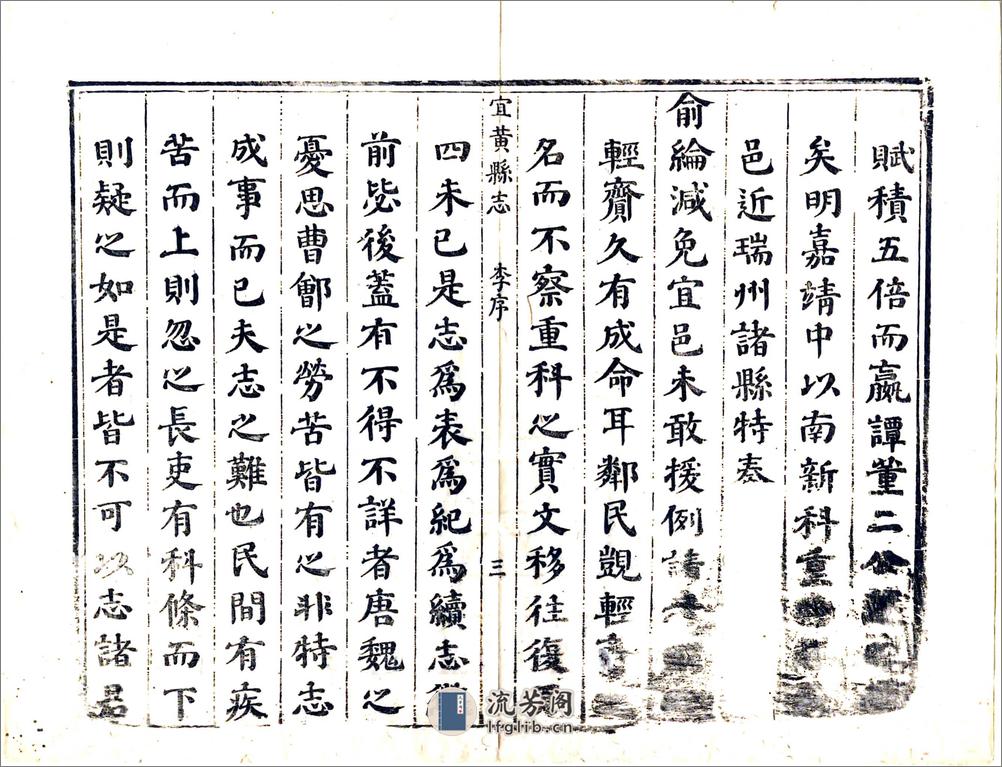 賦積五倍而嬴譚董二公
矣明嘉靖中以南新科重
邑近瑞州諸縣特奏
俞綸減免宜邑未敢援例請
輕齎久有成命耳鄰民覬輕
名而不察重科之實文移往復
宜黃縣志 李序 三
四未已是志爲表爲紀爲續志
前毖後蓋有不得不詳者唐魏之
憂思曹鄶之勞苦皆有之非特志
成事而已夫志之難也民間有疾
苦而上則忽之長吏有科條而下
則疑之如是者皆不可以志諸君
流芳阁
lfglib.cn